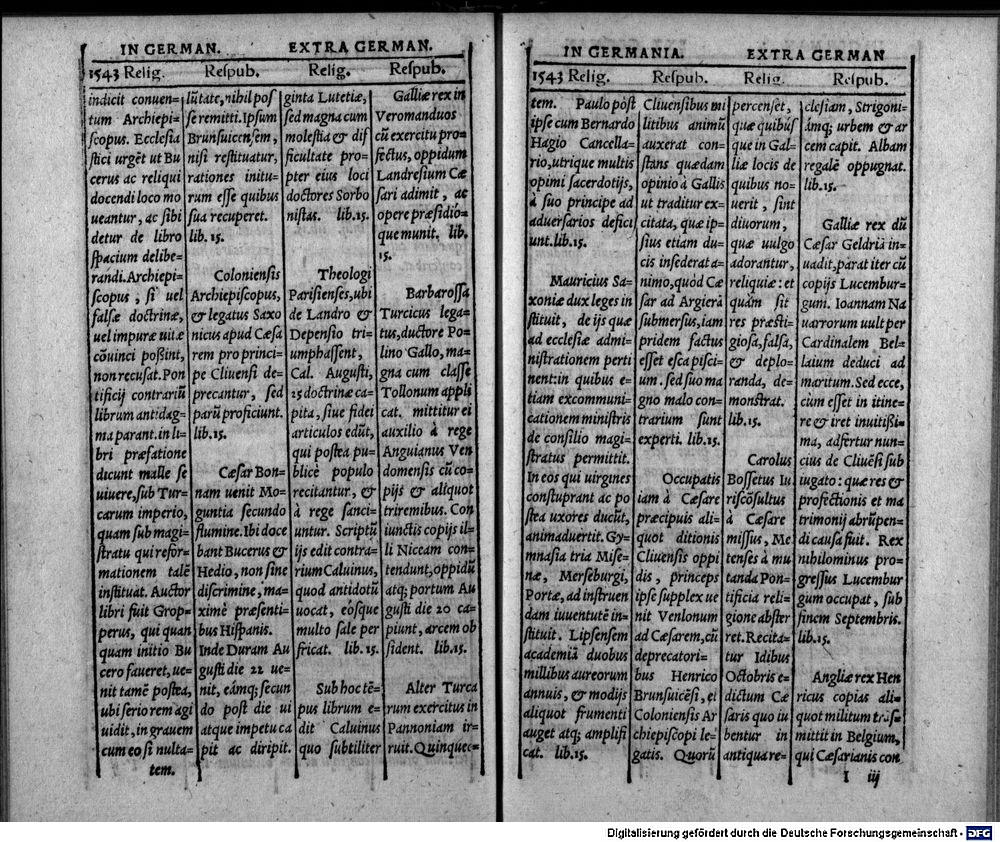 IN GERMAN. EXTRA GERMAN.
1543 Relig. Reſpub. Relig. Reſpub.
indicit conuen-
tum Archiepi-
ſcopus. Eccleſia
ſtici urgẽt ut Bu
cerus ac reliqui
docendi loco mo
ueantur, ac ſibi
detur de libro
ſpacium delibe-
randi. Archiepi-
ſcopus, ſi uel
falſæ doctrinæ,
uel impuræ uitæ
cõuinci poßint,
non recuſat. Pon
tificij contrariũ
librum antidag-
ma parant. in li-
bri præfatione
dicunt malle ſe
uiuere, ſub Tur-
carum imperio,
quam ſub magi-
ſtratu qui refor-
mationem talẽ
inſtituat. Auctor
libri fuit Grop-
perus, qui quan
quam initio Bu
cero faueret, ue-
nit tamẽ poſtea,
ubi ſerio rem agi
uidit, in grauem
cum eo ſi multa-
tem.
lũtate, nihil poſ
ſe remitti. Ipſum
Brunſuicenſem,
niſi reſtituatur,
rationes initu-
rum eſſe quibus
ſua recuperet.
lib. 15.
Colonienſis
Archiepiſcopus,
& legatus Saxo
nicus apud Cæſa
rem pro princi-
pe Cliuenſi de-
precantur, ſed
parũ proficiunt.
lib. 15.
Cæſar Bon-
nam uenit Mo-
guntia ſecundo
flumine. Ibi doce
bant Bucerus &
Hedio, non ſine
diſcrimine, ma-
ximè præſenti-
bus Hiſpanis.
Inde Duram Au
guſti die 22 ue-
nit, eámq; ſecun
do poſt die ui
atque impetu ca
pit ac diripit.
ginta Lutetiæ,
ſed magna cum
moleſtia & dif
ficultate pro-
pter eius loci
doctores Sorbo
niſtas. lib. 15.
Theologi
Pariſienſes, ubi
de Landro &
Depenſio tri-
umphaſſent,
Cal. Auguſti,
25 doctrinæ ca-
pita, ſiue fidei
articulos edũt,
qui poſtea pu-
blicè populo
recitantur, &
à rege ſanci-
untur. Scriptũ
ijs edit contra-
rium Caluinus,
quod antidotũ
uocat, eoſque
multo ſale per
fricat. lib. 15.
Sub hoc tẽ-
pus librum e-
dit Caluinus
quo ſubtiliter
Galliæ rex in
Veromanduos
cũ exercitu pro-
fectus, oppidum
Landreſium Cæ
ſari adimit, ac
opere præſidio-
que munit. lib.
15.
Barbaroſſa
Turcicus lega-
tus, ductore Po-
lino Gallo, ma-
gna cum claſſe
Tollonum appli
cat. mittitur ei
auxilio à rege
Anguianus Ven
domenſis cũ co-
pijs & aliquot
triremibus. Con
iunctis copijs il-
li Niceam con-
tendunt, oppidũ
atq; portum Au
guſti die 20 ca-
piunt, arcem ob
ſident. lib. 15.
Alter Turca
rum exercitus in
Pannoniam ir-
ruit. Quinquec-
IN GERMANIA. EXTRA GERMAN
1543 Relig. Reſpub. Relig. Reſpub.
tem. Paulo pòſt
ipſe cum Bernardo
Hagio Cancella-
rio, utrique multis
opimi ſacerdotijs,
à ſuo principe ad
aduerſarios defici
unt. lib. 15.
Mauricius Sa-
xoniæ dux leges in
ſtituit, de ijs quæ
ad eccleſiæ admi-
niſtrationem perti
nent: in quibus e-
tiam excommuni-
cationem miniſtris
de conſilio magi-
ſtratus permittit.
In eos qui uirgines
conſtuprant ac po
ſtea uxores ducũt,
animaduertit. Gy-
mnaſia tria Miſe-
næ, Merſeburgi,
Portæ, ad inſtruen
dam iuuentutẽ in-
ſtituit. Lipſenſem
academiã duobus
millibus aureorum
annuis, & modijs
aliquot frumenti
auget atq; amplifi
cat. lib. 15.
Cliuenſibus mi
litibus animũ
auxerat con-
ſtans quædam
opinio à Gallis
ut traditur ex-
citata, quæ ip-
ſius etiam du-
cis inſederat a-
nimo, quòd Cæ
ſar ad Argierã
ſubmerſus, iam
pridem factus
eſſet eſca piſci-
um. ſed ſuo ma
gno malo con-
trarium ſunt
experti. lib. 15.
Occupatis
iam à Cæſare
præcipuis ali-
quot ditionis
Cliuenſis oppi
dis, princeps
ipſe ſupplex ue
nit Venlonum
ad Cæſarem, cũ
deprecatori-
bus Henrico
Brunſuicẽſi, ei
Colonienſis Ar
chiepiſcopi le-
gatis. Quorũ
percenſet,
quæ quibuſ
que in Gal-
liæ locis de
quibus no-
uerit, ſint
diuorum,
quæ uulgo
adorantur,
reliquiæ: et
quàm ſit
res præſti-
gioſa, falſa,
& deplo-
randa, de-
monſtrat.
lib. 15.
Carolus
Boſſetus Iu
riſcõſultus
à Cæſare
miſſus, Me
tenſes à mu
tanda Pon-
tificia reli-
gione abſter
ret. Recita-
tur Idibus
Octobris e-
dictum Cæ
ſaris quo iu
bentur in
antiqua re-
cleſiam, Strigoni-
ámq; urbem & ar
cem capit. Albam
regalẽ oppugnat.
lib. 15.
Galliæ rex dũ
Cæſar Geldriã in-
uadit, parat iter cũ
copijs Lucembur-
gum. Ioannam Na
uarrorum uult per
Cardinalem Bel-
laium deduci ad
maritum. Sed ecce,
cùm eſſet in itine-
re & iret inuitißi-
ma, adfertur nun-
cius de Cliuẽſi ſub
iugato: quæ res &
profectionis et ma
trimonij abrũpen-
di cauſa fuit. Rex
nihilominus pro-
greſſus Lucembur
gum occupat, ſub
finem Septembris.
lib. 15.
Angliæ rex Hen
ricus copias ali-
quot militum trãſ-
mittit in Belgium,
qui Cæſarianis con
I iij
Digitalisierung gefördert durch die Deutsche Forschungsgemeinschaft - DFG